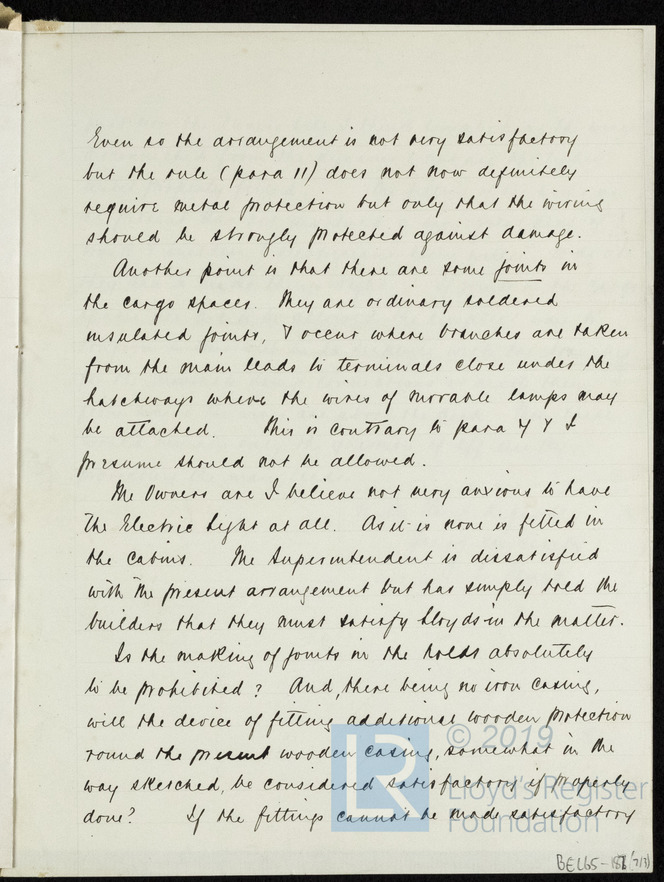 Even so the arrangement is not very satisfactory
but the rule (para 11) does not now definitely
require metal protection but only that the wiring
should be strongly protected against damage.
Another point is that there are some joints in
the cargo spaces. They are ordinary soldered
insulated joints, & occur where branches are taken
from the main leads to terminals close under the
hatchways where the wires of movable lamps may
be attached. This is contrary to para 4 & I
presume should not be allowed.
The Owners are I believe not very anxious to have
the Electric Light at all. As it is none is fitted in
the cabins. The Superintendent is dissatisfied
with the present arrangement but has simply told the
builders that they must satisfy Lloyds in the matter.
Is the making of joints in the holds absolutely
to be prohibited? And, there being no iron casing,
will the device of fitting additional wooden protection
round the present wooden casing, somewhat in the
way sketched, be considered satisfactory if properly
done? If the fittings cannot be made satisfactory
© 2019
Lloyd's Register
Foundation
LR
BEL65-
(7/3)